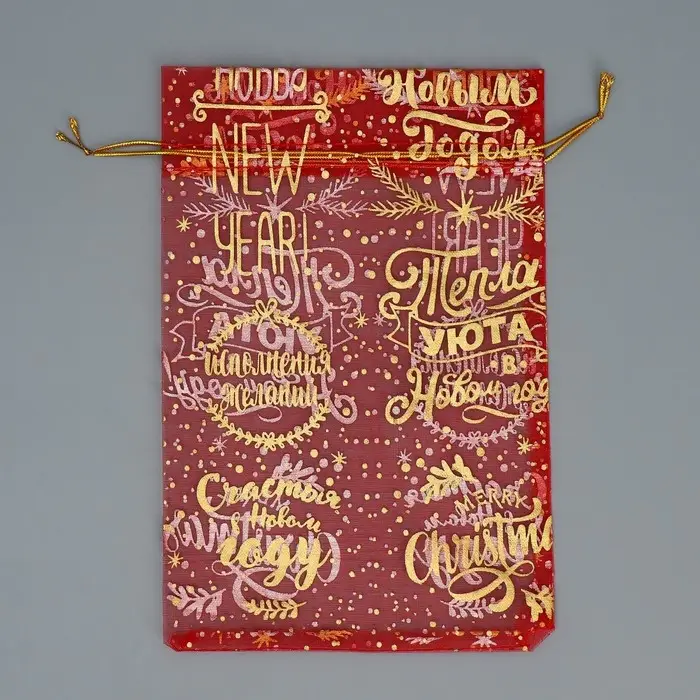 Новым
годом
NEW
YEAR!
Тепла
УЮТА
в
Новом году
исполнения
желаний
Счастья
в Новом
году
MERRY
Christma